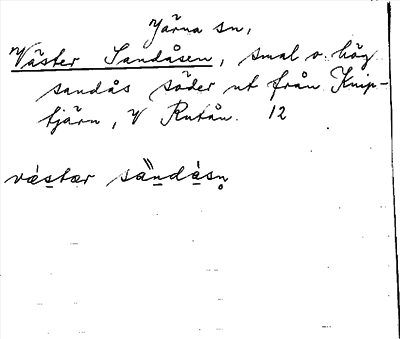 Järna sn,
Väster Sandåsen, smal o. hög
sandås söder ut från Knip-
tjärn, V Rutån. 12
væstær sandåsn